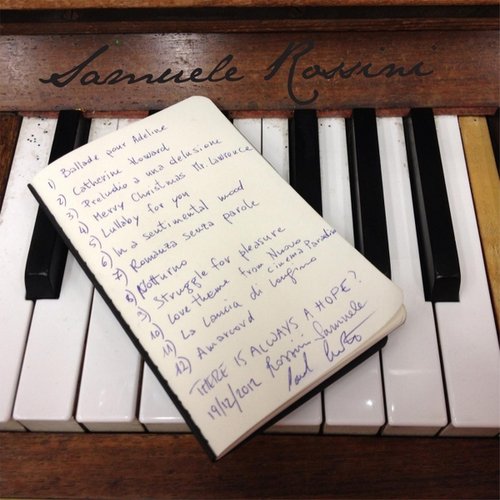 Samuele Rossini
1) Ballade pour Adeline
2) Catherine Howard
3) Preludio a una delusione
4) Merry Christmas Mr. Lawrence
5) Lullaby for you
6) In a sentimental mood
7) Romanza senza parole
8) Notturno
9) Struggle for pleasure
10) Love theme from Nuovo
Cinema Paradiso
11) La Lancia di Longino
12) Amarcord
THERE IS ALWAYS A HOPE?
19/12/2012 Rossini Samuele